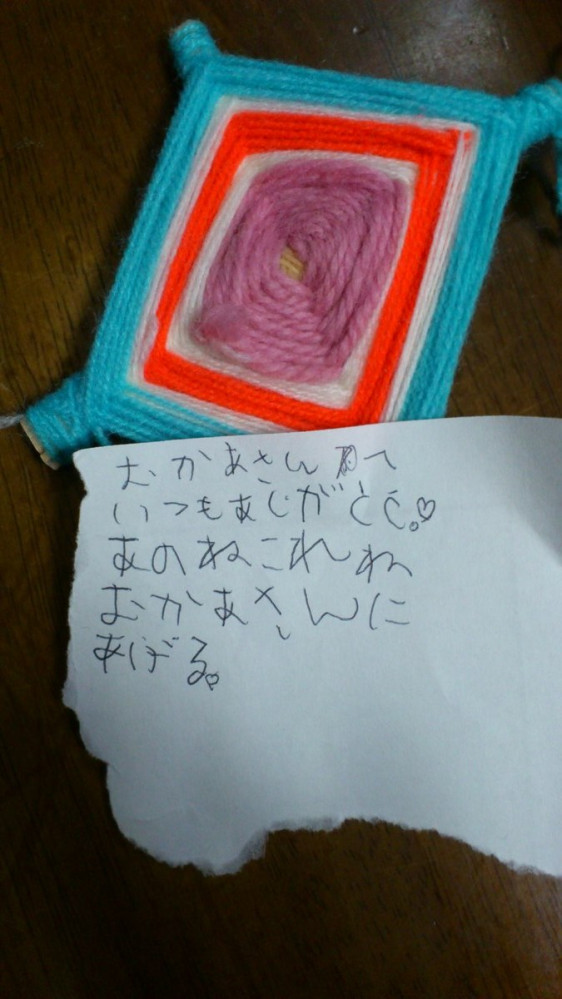 おかあさんへ
いつもありがとう。♡
あのねこれね
おかあさんに
あげる。